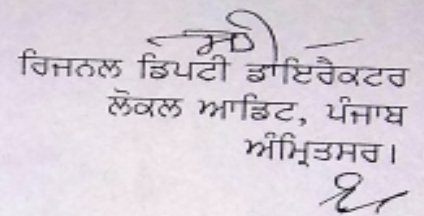 ਰਿਜਨਲ ਡਿਪਟੀ ਡਾਇਰੈਕਟਰ
ਲੋਕਲ ਆਡਿਟ, ਪੰਜਾਬ
ਅੰਮ੍ਰਿਤਸਰ।